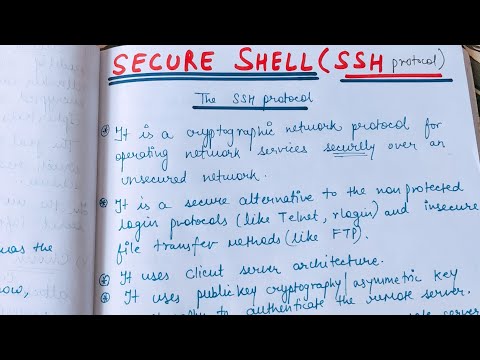 SECURE SHELL (SSH protocol)
The SSH protocol
It is a cryptographic network protocol for
operating network services securely over an
unsecured network.
It is a secure alternative to the non protected
login protocols (like Telnet, rlogin) and insecure
file transfer methods (like FTP).
It uses client server architecture.
It uses public key cryptography/asymmetric key
to authenticate the remote server.
was the
now,